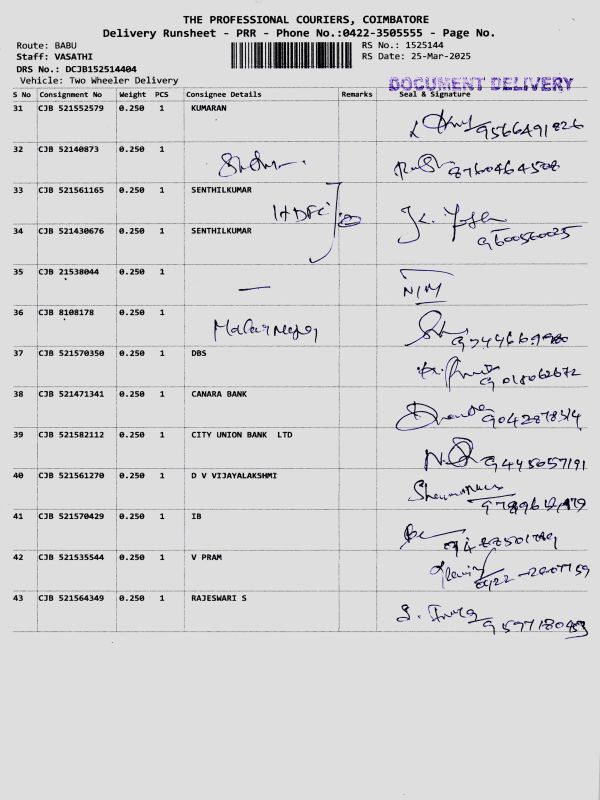 THE PROFESSIONAL COURIERS, COIMBATORE
Delivery Runsheet - PRR - Phone No.:0422-3505555 - Page No.
Route: BABU RS No.: 1525144
Staff: VASATHI RS Date: 25-Mar-2025
DRS No.: DCJB152514404
Vehicle: Two Wheeler Delivery
DOCUMENT DELIVERY
S No Consignment No Weight PCS Consignee Details Remarks Seal & Signature
31 CJB 521552579 0.250 1 KUMARAN 9566491826
32 CJB 52140873 0.250 1 8760464508
33 CJB 521561165 0.250 1 SENTHILKUMAR
HDFC
34 CJB 521430676 0.250 1 SENTHILKUMAR 9600560025
35 CJB 21538044 0.250 1 — N/M
36 CJB 8108178 0.250 1
37 CJB 521570350 0.250 1 DBS 9018062672
38 CJB 521471341 0.250 1 CANARA BANK
39 CJB 521582112 0.250 1 CITY UNION BANK LTD 9445657191
40 CJB 521561270 0.250 1 D V VIJAYALAKSHMI
41 CJB 521570429 0.250 1 IB
42 CJB 521535544 0.250 1 V PRAM
43 CJB 521564349 0.250 1 RAJESWARI S 9597180453